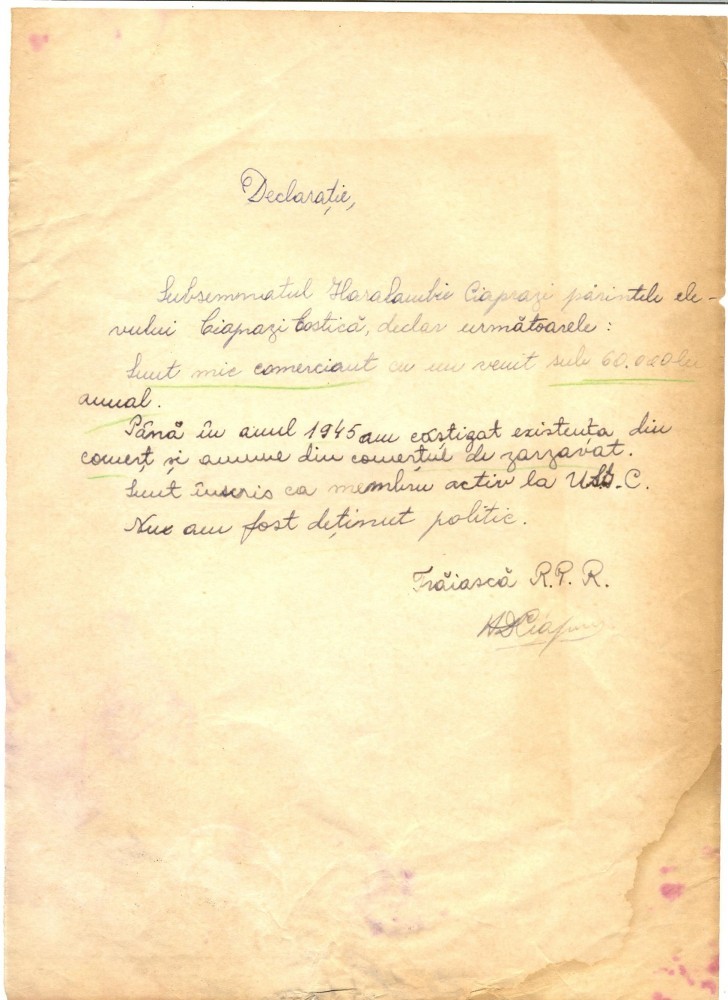 Declarație,
Subsemnatul Haralambie Ciaprazi părintele ele-
vului Ciaprazi Costică, declar următoarele :
Sunt mic comerciant cu un venit sub 60.000 lei
anual.
Până în anul 1945 am câștigat existența din
comerț și anume din comerțul de zarzavat.
Sunt înscris ca membru activ la
Nu am fost deținut politic.
Trăiască R.P.R.